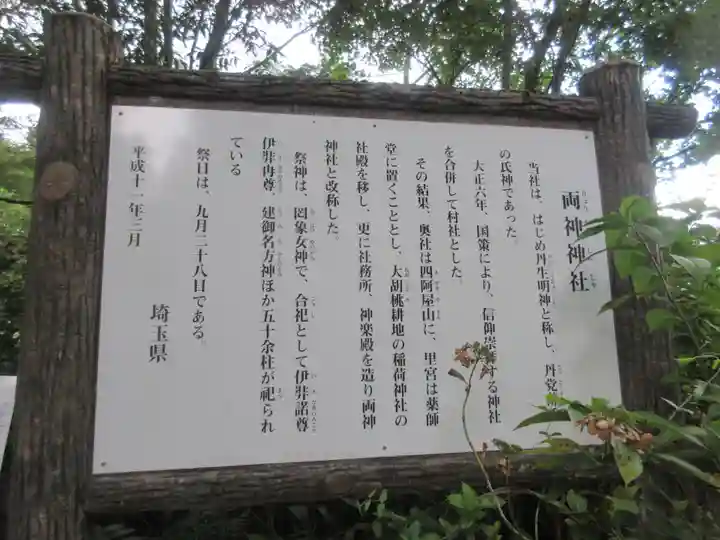 両神神社
当社は、はじめ丹生明神と称し、丹党
の氏神であった。
大正六年、国策により、信仰崇する神社
を合併して村社とした。
その結果、奥社は四阿屋山に、里宮は薬師
堂に置くこととし、大胡桃耕地の稲荷神社の
社殿を移し、更に社務所、神楽殿を造り両神
神社と改称した。
祭神は、罔象女神で、合祀として伊弉諾尊
伊弉冉尊、建御名方神ほか五十余柱が祀られ
ている
祭日は、九月二十八日である。
平成十一年三月
埼玉県